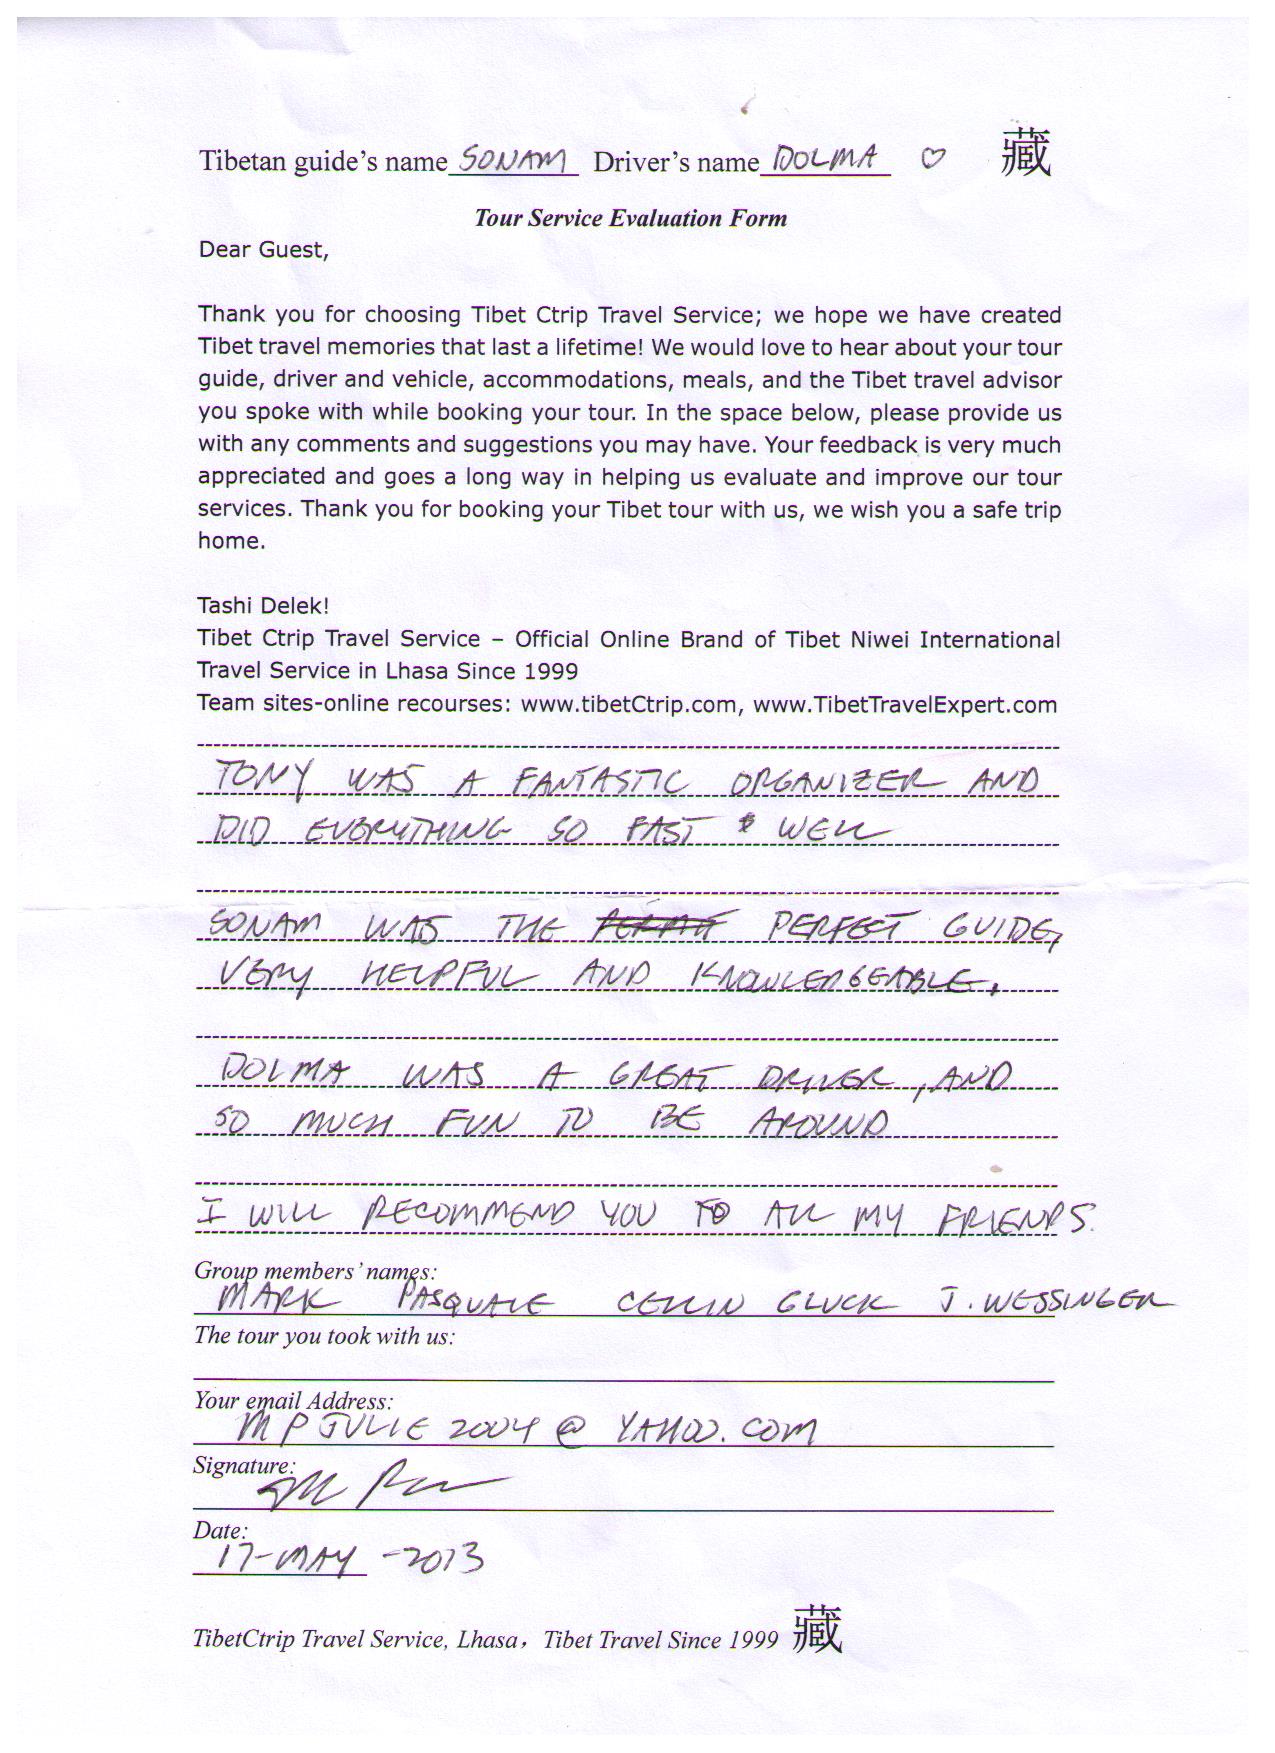 Tibetan guide's name SONAM Driver's name DOLMA ♡ 藏
Tour Service Evaluation Form
Dear Guest,
Thank you for choosing Tibet Ctrip Travel Service; we hope we have created
Tibet travel memories that last a lifetime! We would love to hear about your tour
guide, driver and vehicle, accommodations, meals, and the Tibet travel advisor
you spoke with while booking your tour. In the space below, please provide us
with any comments and suggestions you may have. Your feedback is very much
appreciated and goes a long way in helping us evaluate and improve our tour
services. Thank you for booking your Tibet tour with us, we wish you a safe trip
home.
Tashi Delek!
Tibet Ctrip Travel Service – Official Online Brand of Tibet Niwei International
Travel Service in Lhasa Since 1999
Team sites-online recourses: www.tibetCtrip.com, www.TibetTravelExpert.com
TONY WAS A FANTASTIC ORGANIZER AND
DID EVERYTHING SO FAST & WELL
SONAM WAS THE PERFECT GUIDE,
VERY HELPFUL AND KNOWLEDGEABLE.
DOLMA WAS A GREAT DRIVER, AND
SO MUCH FUN TO BE AROUND
I WILL RECOMMEND YOU TO ALL MY FRIENDS.
Group members' names:
MARK PASQUALE CELLIN GLUCK J. WESSINGER
The tour you took with us:
Your email Address:
MPJULIE2004@YAHOO.COM
Signature:
Date:
17-MAY-2013
TibetCtrip Travel Service, Lhasa, Tibet Travel Since 1999 藏